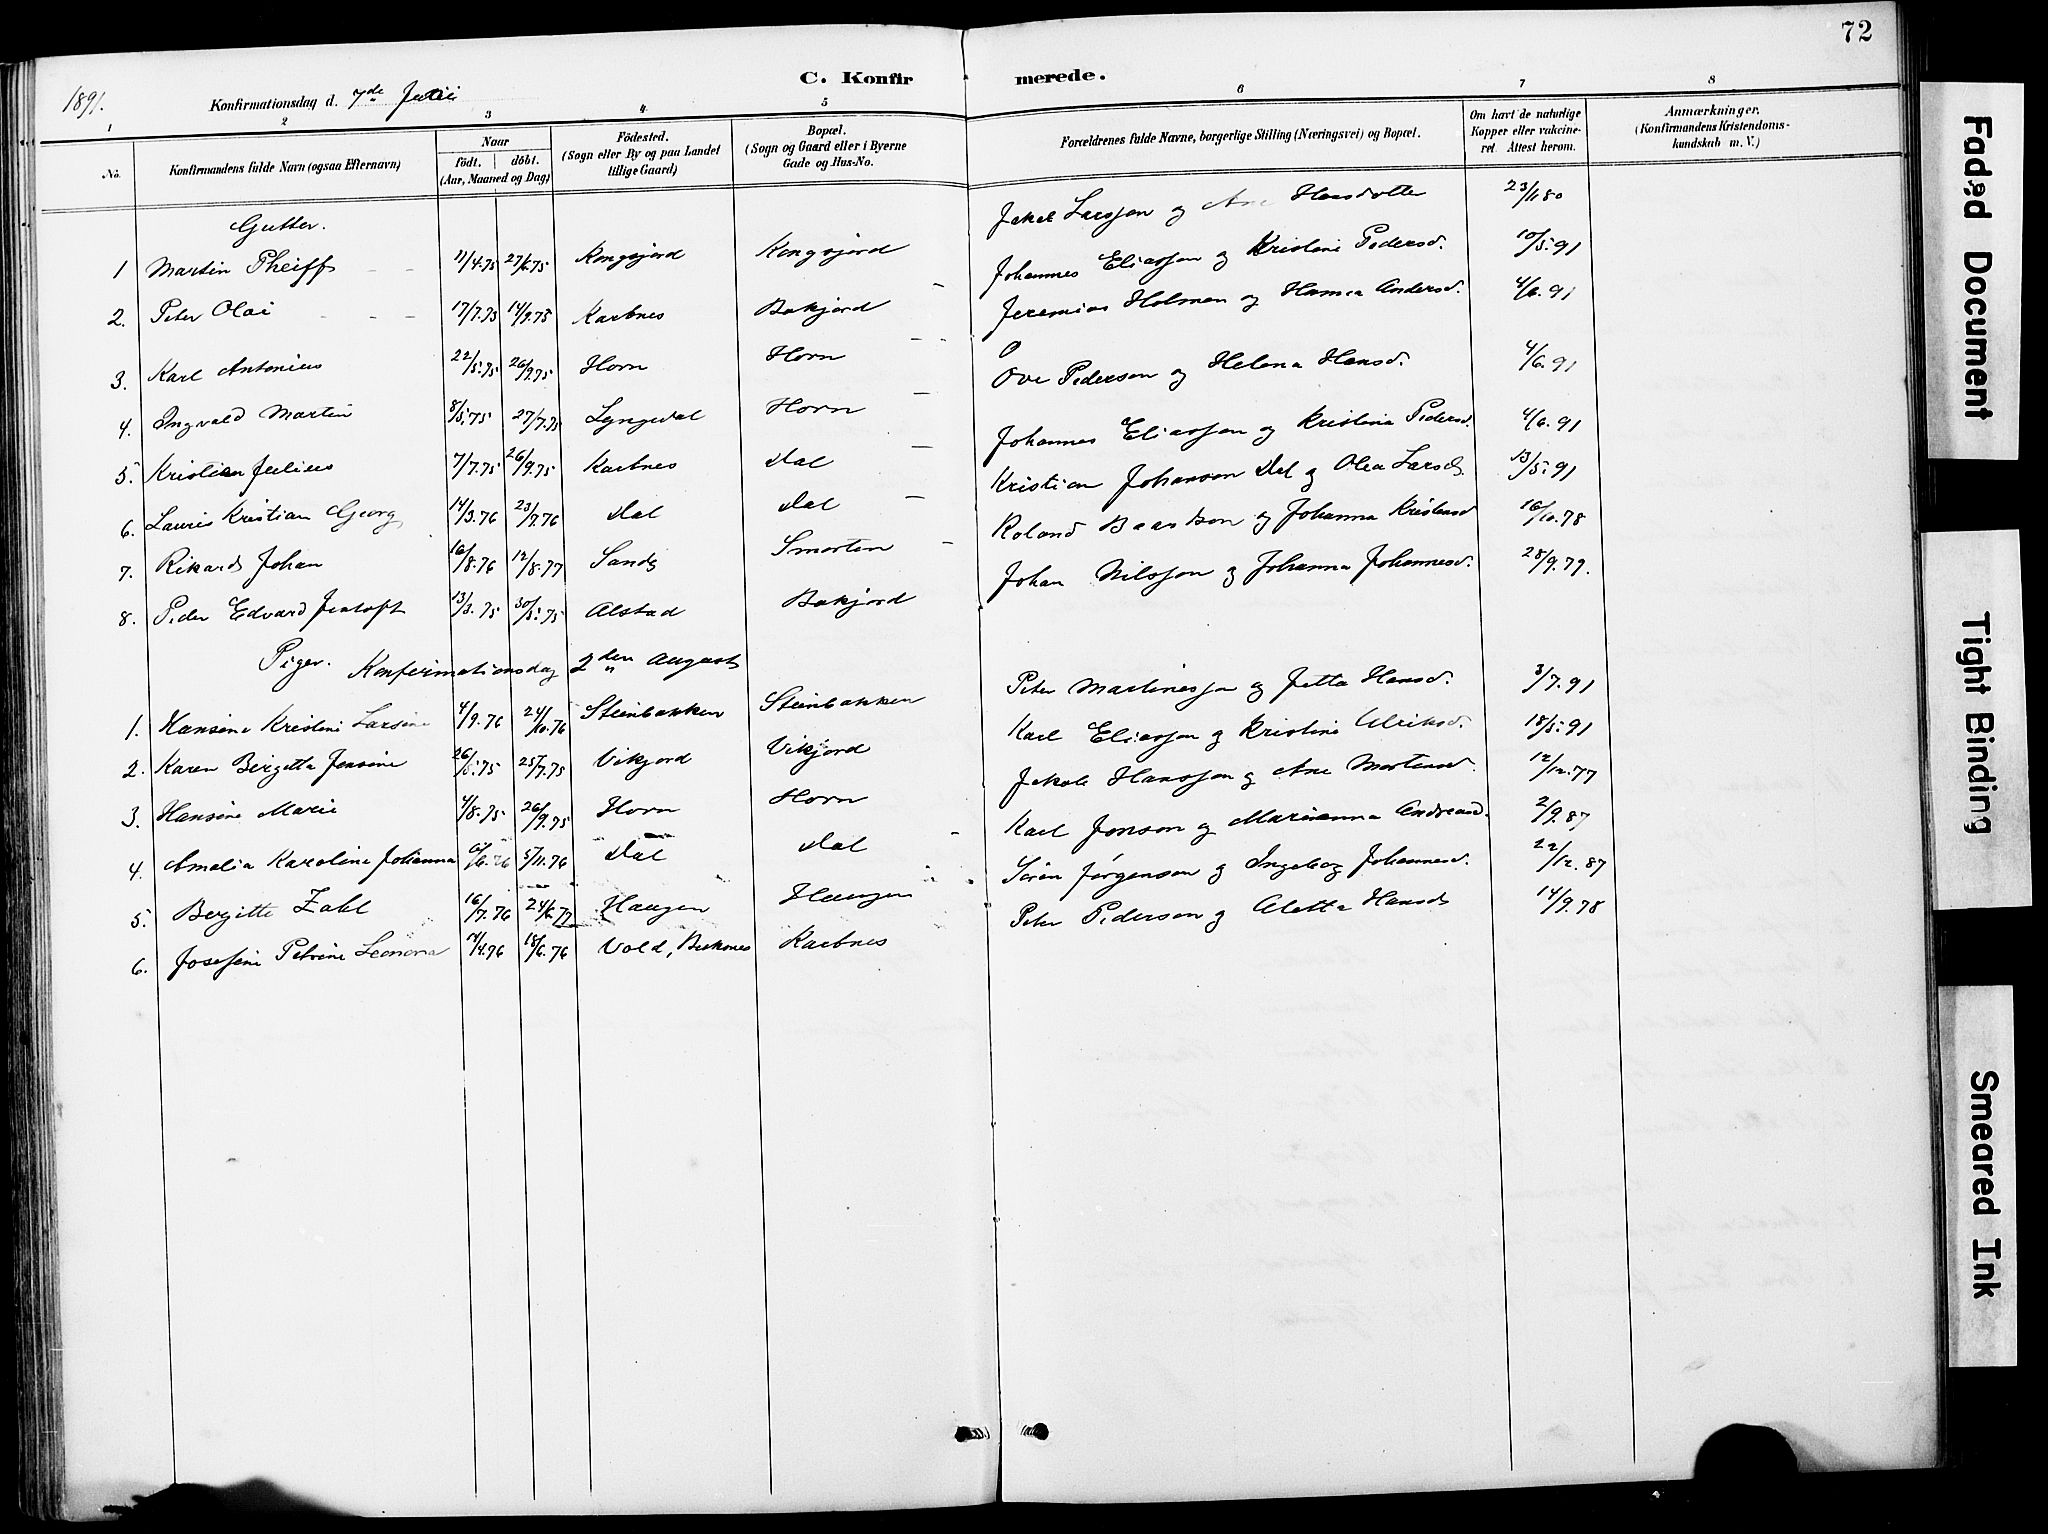 72
C. Konfirmerede.
1891.
Konfirmationsdag d. 7de Juli
1 2 3 4 5 6 7 8
No.
Konfirmandens fulde Navn (ogsaa Efternavn)
Naar
födt. döbt.
(Aar, Maaned og Dag)
Födested.
(Sogn eller By og paa Landet
tillige Gaard)
Bopæl.
(Sogn og Gaard eller i Byerne
Gade og Hus-No.
Forældrenes fulde Navne, borgerlige Stilling (Næringsvei) og Bopæl.
Om havt de naturlige
Kopper eller vakcine-
ret. Attest herom.
Anmærkninger.
(Konfirmandens Kristendoms-
kundskab m. V.)
Gutter.
1 Martin Pheiff 11/4.75 27/6.75 Kongsjord Kongsjord Jakob Larsson og Ane Hansdotter 23/11 80
2. Peter Olai 17/7.75 14/9.75 Kartnes Bakjord Johannes Eliasson og Kristine Pedersd. 10/5.91
3. Karl Antonius 22/5.75 26/9.75 Horn Horn Jeremias Holmen og Hanna Andersd. 4/6.91
4. Ingvald Martin 8/5.75 27/7.75 Lyngedal Horn Ove Pederson og Helena Hansd. 4/6.91
5. Kristian Julius 7/7.75 26/9.75 Kartnes Dal Johannes Eliasson og Kristina Pedersd. 4/6.91
6. Lauris Kristian Georg 14/3.76 23/7.76 Dal Dal Kristian Johanson Dal og Olea Larsd. 13/5.91
7. Rikard Johan 16/8.76 12/8.77 Sands Smorten Roland Baardson og Johanna Kristensd 16/10.78
8. Peder Edvard Jentoft 13/3.75 30/5.75 Alstad Bakjord Johan Nilsson og Johanna Johannesd. 28/9.79.
Piger. Konfirmationsdag 2den August
1. Hansine Kristine Larsine 4/9.76 24/10.76 Steinbakken Steinbakken Peter Martinesson og Jetta Hansd. 3/7.91
2. Karen Bergitta Jensine 26/5.75 25/7.75 Vikjord Vikjord Karl Eliasson og Kristine Ulriksd. 18/5.91
3. Hansine Marie 4/8.75 26/9.75 Horn Horn Jakob Hansson og Ane Mortensd. 12/12.77
4. Amalia Karoline Johanna 5/11.76 Dal Dal Karl Jonson og Marianna Andreasd. 2/9.87
5. Bergitte Zakl 16/7.76 24/6.77 Haugen Haugen Sören Jørgenson og Ingeborg Johannesd. 22/12.87
6. Josefine Petrine Leonora 18/6.76 Vold, Buknes Kartnes Peter Pederson og Aletta Hansd 14/9.78
Faded Document
Tight Binding
Smeared Ink